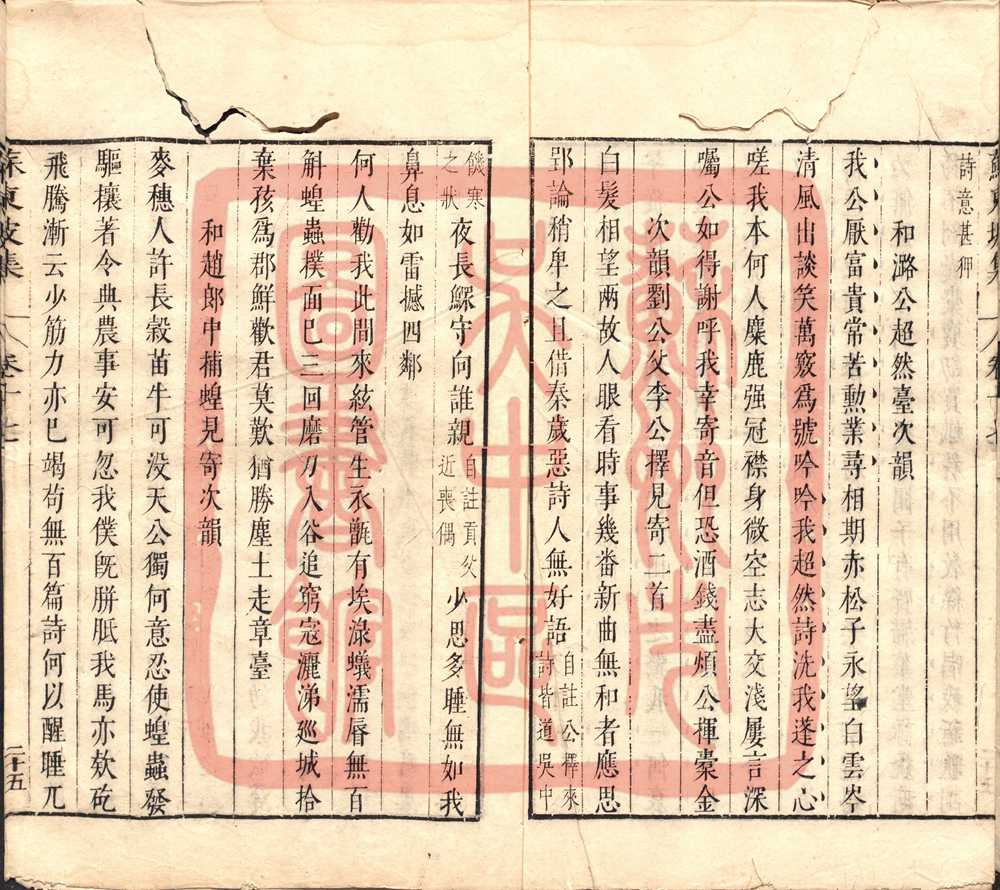 詩意甚狎
和潞公超然臺次韻
我公厭富貴常苦勲業尋相期赤松子永望白雲岑
清風出談笑萬竅爲號吟吟我超然詩洗我蓬之心
嗟我本何人麋鹿强冠襟身微空志大交淺屢言深
囑公如得謝呼我幸寄音但恐酒錢盡煩公揮橐金
次韻劉公父李公擇見寄二首
白髮相望兩故人眼看時事幾番新曲無和者應思
郢論稍卑之且借秦歲惡詩人無好語自註公擇來詩皆道吳中
饑寒之狀夜長鰥守向誰親自註貢父近喪偶少思多睡無如我
鼻息如雷撼四鄰
何人勸我此間來絃管生衣甑有埃淥蟻濡唇無百
斛蝗蟲撲面已三回磨刀入谷追窮寇灑涕廵城拾
棄孩爲郡鮮歡君莫歎猶勝塵土走章臺
和趙郎中捕蝗見寄次韻
麥穗人許長穀苗牛可没天公獨何意忍使蝗蟲發
驅攘著令典農事安可忽我僕旣胼胝我馬亦款矻
飛騰漸云少筋力亦巳竭茍無百篇詩何以醒睡兀
蘇東坡集
二十五
蘇州市
吴中區
圖書館